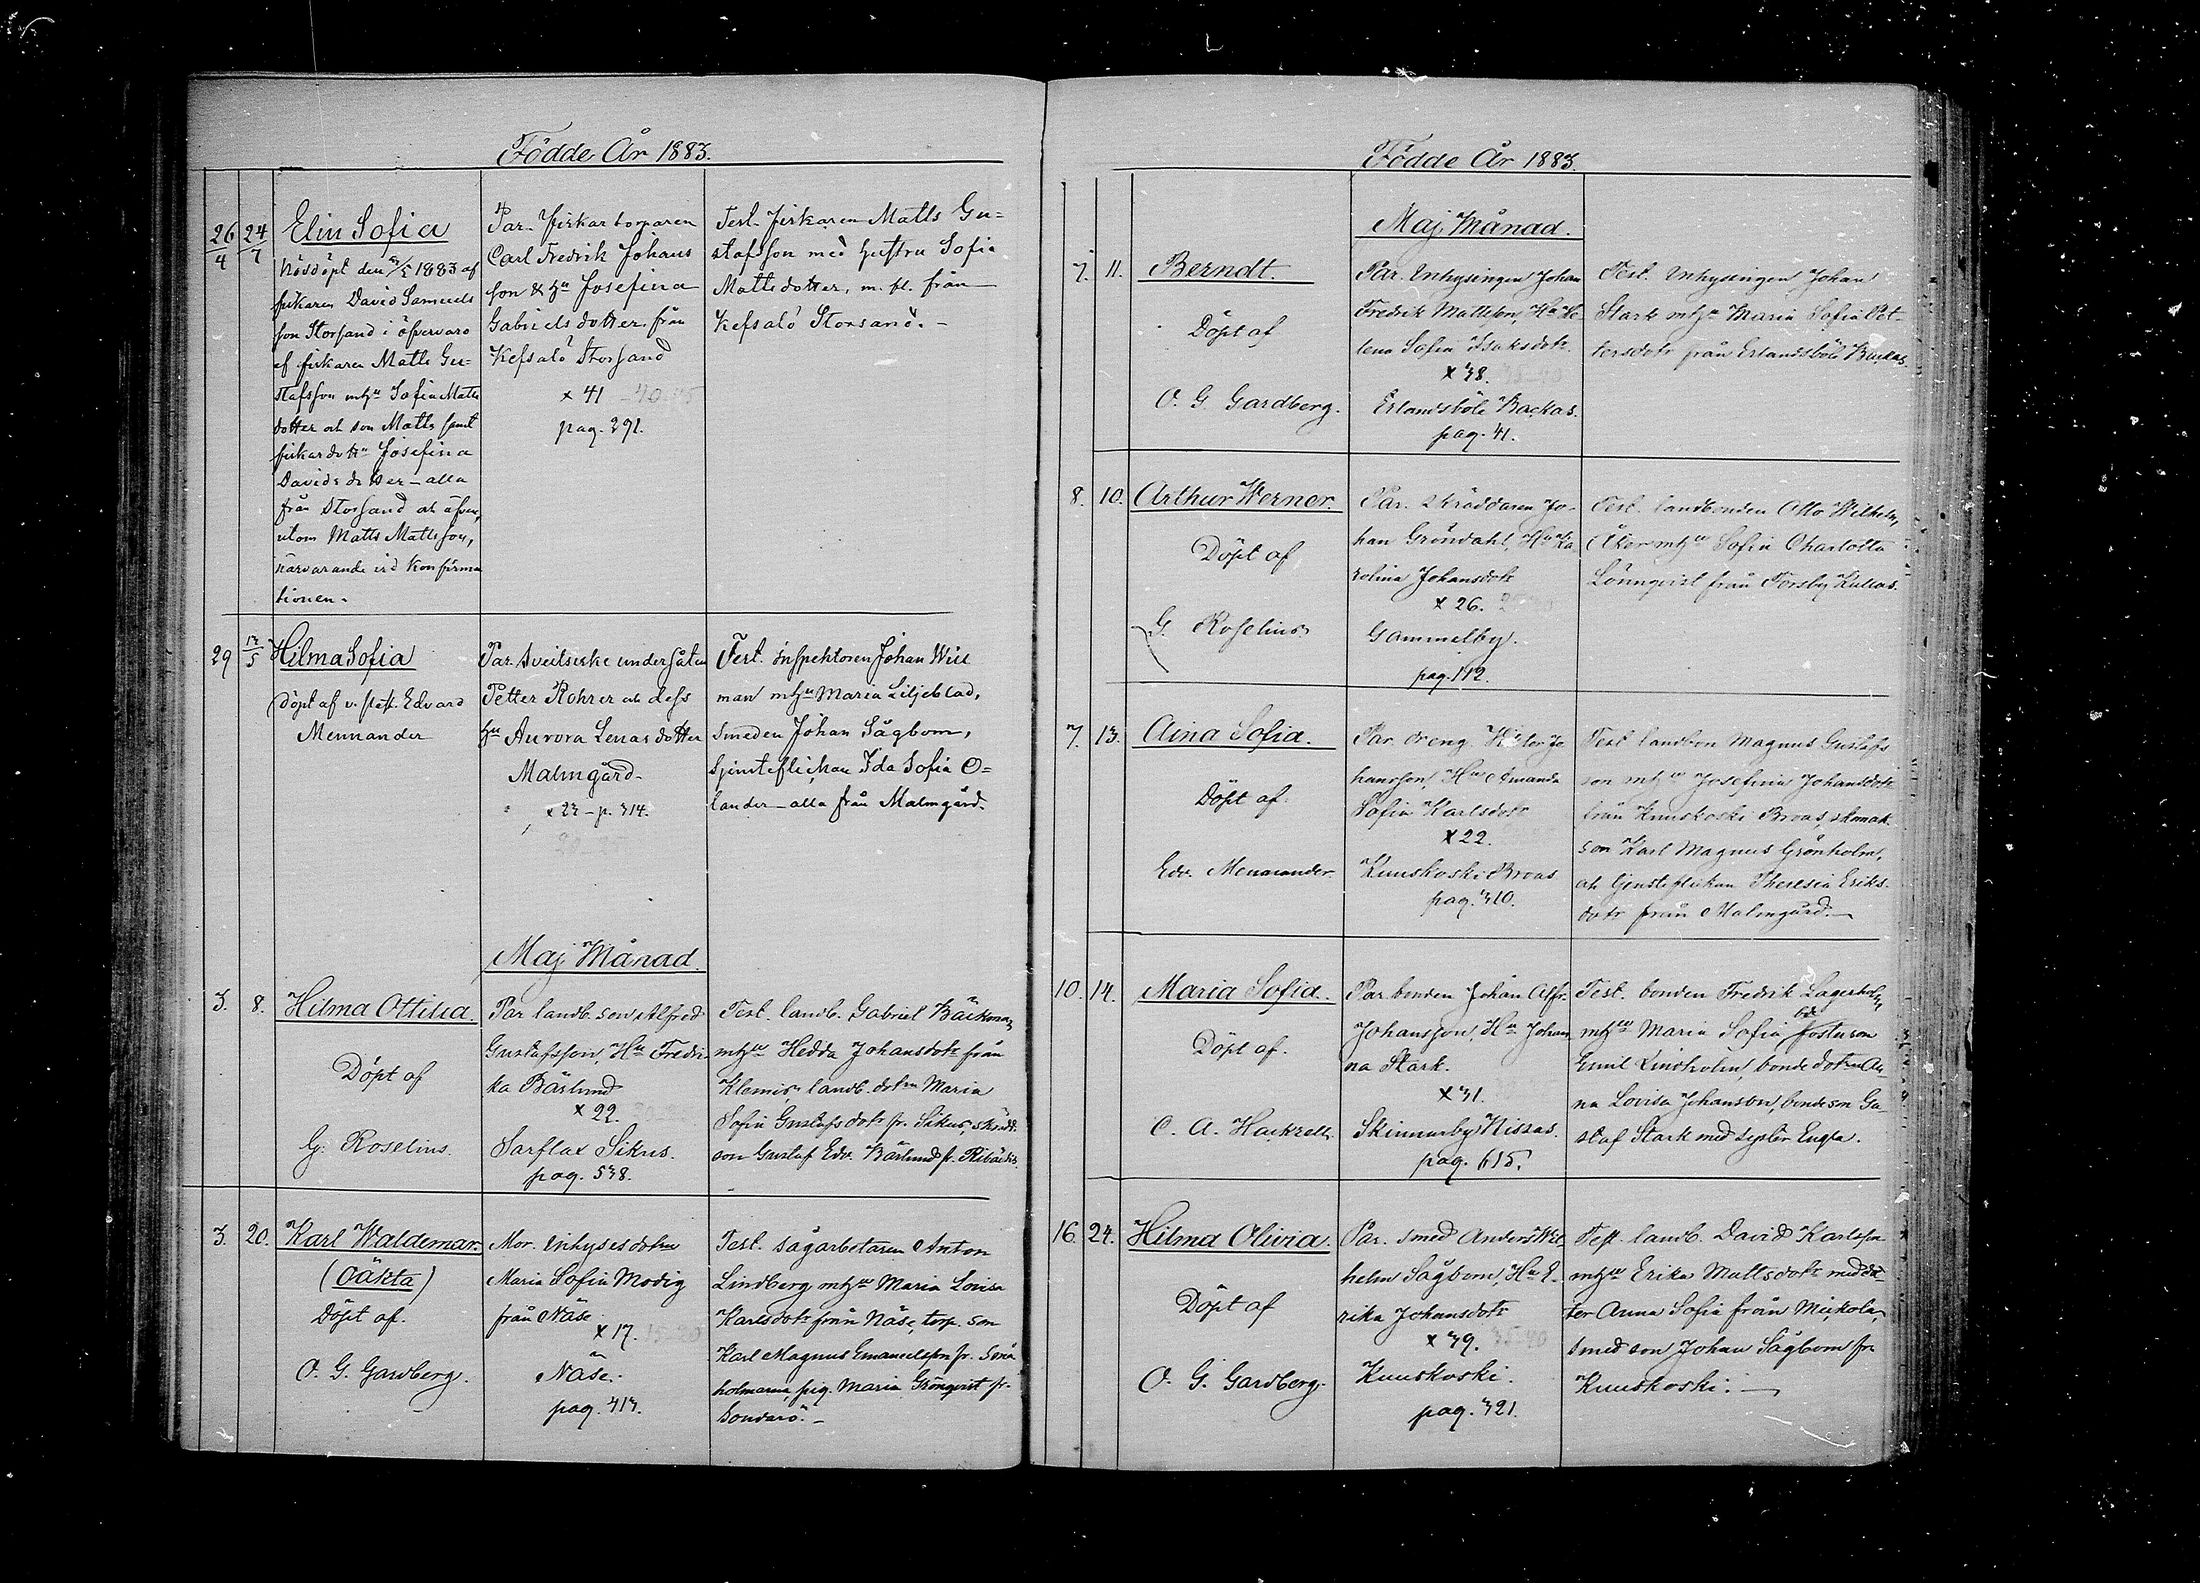 Födde År 1883.
26/4 24/7 Elin Sofia
Nöddöpt den 1883 af
fiskaren David Samuels
son Storsand i öfvervaro
af fiskaren Matts Gu-
stafsson mhu Sofia Matts
dotter och son Matts samt
fiskardottr Josefina
Davidsdotter – alla
från Storsand och äfven,
utom Matts Mattsson,
närvarande vid konfirma
tionen.
Par. fiskartorparen
Carl Fredrik Johans
son & hu Josefina
Gabrielsdotter från
Kefsalö Storsand
x 41
pag. 391.
Test. fiskaren Matts Gu-
stafsson med hustru Sofia
Mattsdotter, m. fl. från
Kefsalö Storsand. –
29 13/5 Hilma Sofia
döpt af v. past. Edvard
Mennander
Par. Sveitsiske undersåten
Petter Rohrer och dess
hu Aurora Lenasdotter
Malmgård.
x 23 – p. 314.
Test. Inspektoren Johan Wiss
man mhu Maria Liljeblad,
smeden Johan Sågbom,
tjensteflickan Ida Sofia O-
lander – alla från Malmgård.
Maj Månad.
3. 8. Hilma Ottilia.
Döpt af
G. Roselius.
Par landb. son Alfred
Gustafsson, Hu Fredri
ka Bärlund
x 22.
Sarflax Sikus.
pag. 538.
Test. landb. Gabriel Bäckman
mhu Hedda Johansdotr från
Klemis, landb. dotrn Maria
Sofia Gustafsdotr fr. Sikus, skrädd.
son Gustaf Edv. Bärlund fr. Ribäcks.
3. 20. Karl Waldemar.
(Oäkta)
Döpt af.
O. G. Gardberg.
Mor. inhysesdotrn
Maria Sofia Modig
från Näse
x 17.
Näse.
pag. 413.
Test. sågarbetaren Anton
Lindberg mhu Maria Lovisa
Karlsdotr från Näse, torp. son
Karl Magnus Emanuelsson fr. Små
holmarna, pig. Maria Grönqvist fr.
Sondarö. –
Födde År 1883.
Maj Månad.
7. 11. Berndt.
Döpt af
O. G. Gardberg.
Par. Inhysingen Johan
Fredrik Mattsson, Hu He
lena Sofia Isaksdotr.
x 38.
Erlandsböle Backas.
pag. 41.
Test. Inhysingen Johan
Stark mhu Maria Sofia Pet-
tersdotr från Erlandsböle Backas.
8. 10. Arthur Werner.
Döpt af
G. Roselius
Par. skräddaren Jo-
han Gröndahl, Hu Ka
rolina Johansdotr
x 26.
Gammelby.
pag. 112.
Test. landbonden Otto Wilhelm
Åker mhu Sofia Charlotta
Lönnqvist från Forsby Kullas.
7. 13. Aina Sofia.
Döpt af.
Edv. Mennander.
Par. dreng. Viktor Jo
hansson, Hu Amanda
Sofia Karlsdotr
x 22.
Kuuskoski Broas
pag. 310.
Test landbon Magnus Gustafs
son mhu Josefina Johansdotr
från Kuuskoski Broas, skomak.
son Karl Magnus Grönholm,
och tjensteflickan Theresia Eriks
dotr från Malmgård. –
10. 14. Maria Sofia.
Döpt af.
C. A. Hackzell.
Par. bonden Johan Alfr.
Johansson, Hu Johan
na Stark.
x 31.
Skinnarby Nissas.
pag. 615.
Test. bonden Fredrik Lagerholm
mhu Maria Sofia fosterson
Emil Lindholm, bonde dotrn An
na Lovisa Johansson, bondeson Gu
staf Stark med syster Engla.
16. 24. Hilma Olivia.
Döpt af
O. G. Gardberg.
Par. smed Anders Wil
helm Sågbom, Hu E-
rika Johansdotr
x 39.
Kuuskoski.
pag. 321.
Test. landb. David Karlsson
mhu Erika Mattsdotr med dot
ter Anna Sofia från Mickola,
smedson Johan Sågbom fr.
Kuuskoski. –